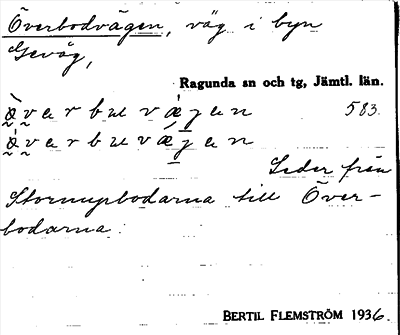 Överbodvägen, väg i byn
Gevåg,
Ragunda sn och tg, Jämtl. län.
583.
Leder från
Stornupbodarna till Över-
bodarna.
BERTIL FLEMSTRÖM 1936.